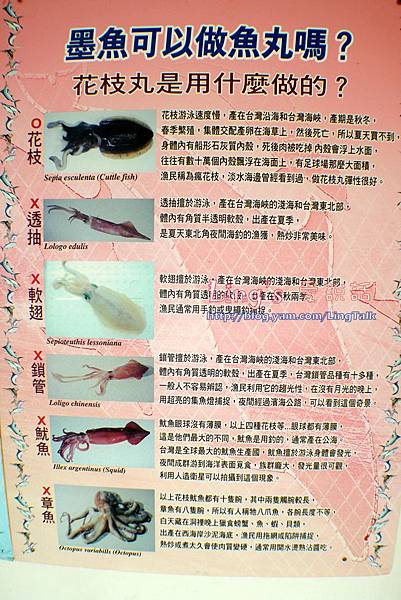 墨魚可以做魚丸嗎？
花枝丸是用什麼做的？
O花枝
Sepia esculenta (Cuttle fish)
花枝游泳速度慢，產在台灣沿海和台灣海峽，產期是秋冬，
春季繁殖，集體交配產卵在海草上，然後死亡，所以夏天買不到，
身體內有船形石灰質內殼，死後肉被吃掉 內殼會浮上水面，
往往有數十萬個內殼飄浮在海面上，有足球場那麼大面積，
漁民稱為瘋花枝，淡水海邊曾經看到過，做花枝丸彈性很好。
X透抽
Lologo edulis
透抽擅於游泳，產在台灣海峽的淺海和台灣東北部，
體內有角質半透明軟殼，出產在夏季，
是夏天東北角夜間海釣的漁獲，熱炒非常美味。
X軟翅
Sepioteuthis lessoniana
軟翅擅於游泳，產在台灣海峽的淺海和台灣東北部，
體內有角質透明的
漁民通常用手釣或曳繩釣捕捉。
http://blog.yam.com/LingTalk
X鎖管
Loligo chinensis
鎖管擅於游泳，產在台灣海峽的淺海和台灣東北部，
體內有角質透明的軟殼，出產在夏季，台灣鎖管品種有十多種，
一般人不容易辨認，漁民利用它的趨光性，在沒有月光的晚上，
用超亮的集魚燈捕捉，夜間經過濱海公路，可以看到這個奇景。
X魷魚
Illex argentinus (Squid)
魷魚眼球沒有薄膜，以上四種花枝等...眼球都有薄膜，
這是他們最大的不同，魷魚是用釣的，通常產在公海，
台灣是全球最大的魷魚生產國，魷魚擅於游泳身體會發光，
夜間成群游到海洋表面覓食，族群龐大，發光量很可觀，
利用人造衛星可以拍攝到這個現象。
X章魚
Octopus variabilis (Octopus)
以上花枝魷魚都有十隻腕，其中兩隻觸腕較長，
章魚有八隻腕，所以有人稱牠八爪魚，各腕長度不等，
白天藏在洞裡晚上獵食螃蟹、魚、蝦、貝類，
出產在西海岸沙泥海底，漁民用拖網或陷阱捕捉，
熱炒或煮太久會使肉質變硬，通常用開水燙熟沾醬吃。